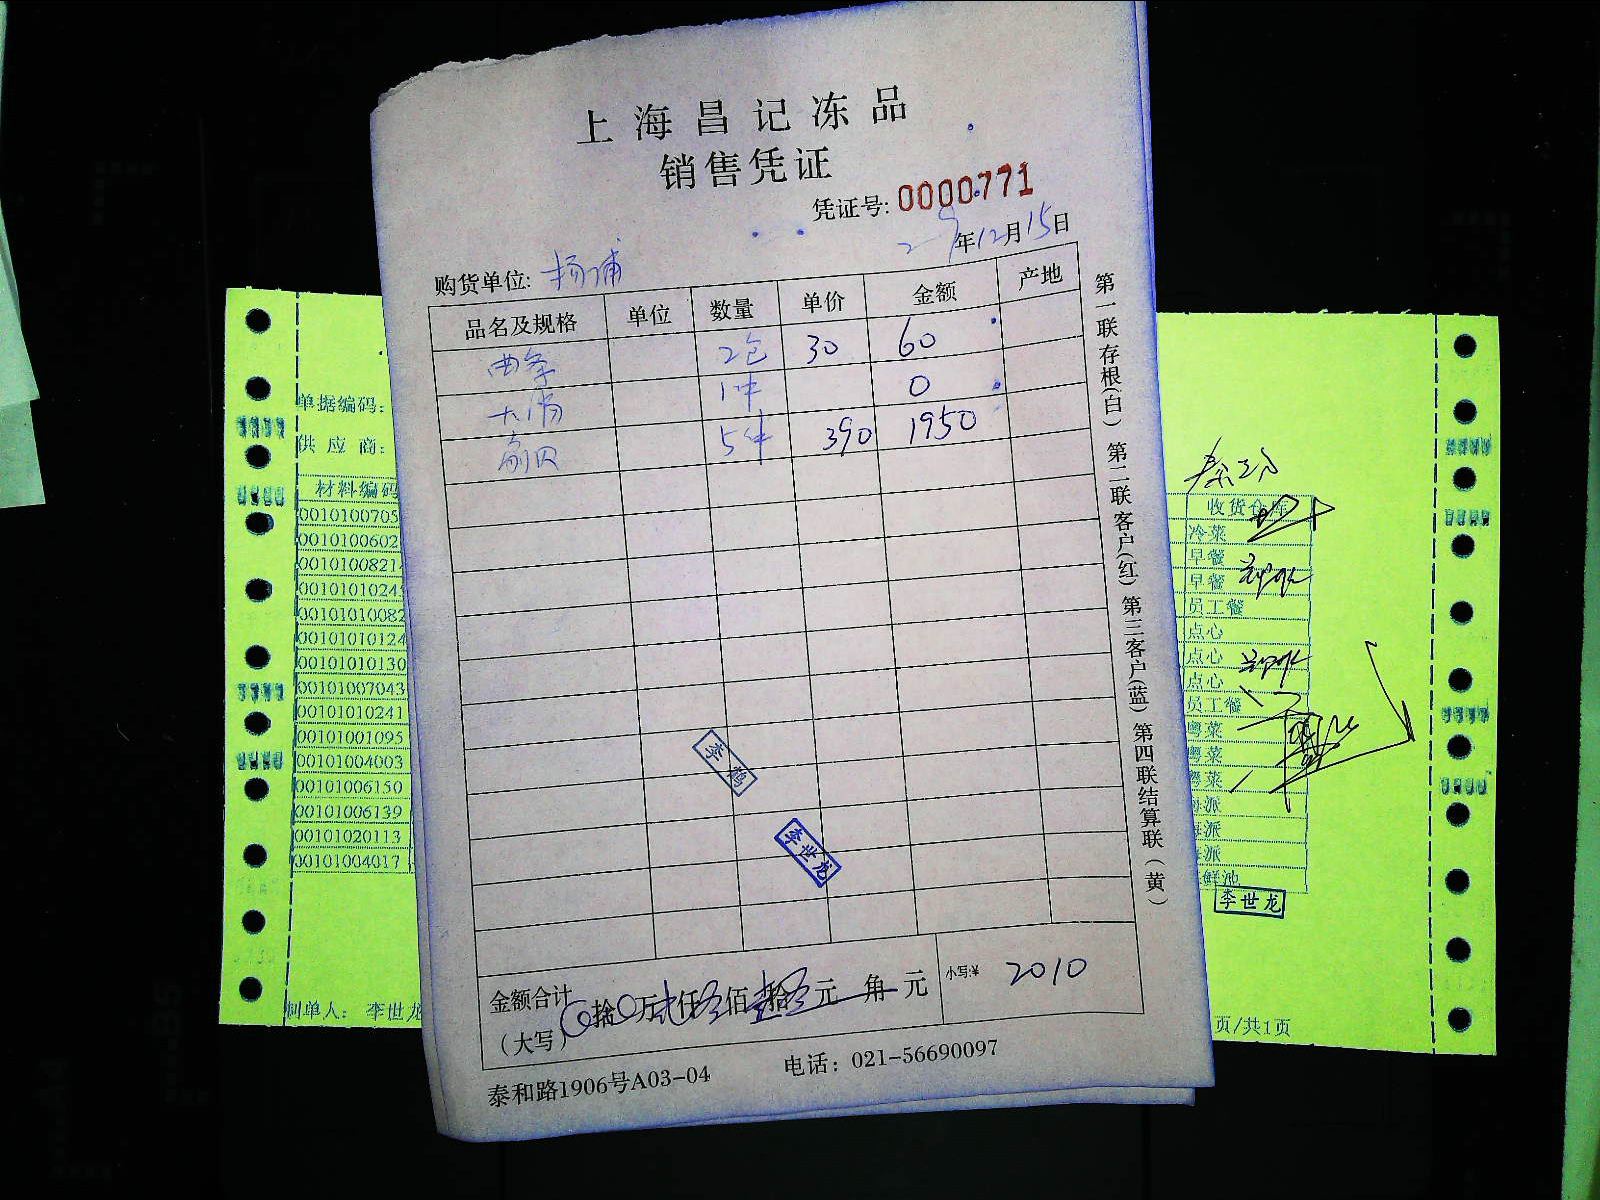 上海昌记冻品
销售凭证
凭证号: 0000771
年12月15日
购货单位: 杨浦
品名及规格 单位 数量 单价 金额 产地
2包 30 60
1件 0
5件 390 1950
李鹤
李世龙
金额合计
(大写) 0拾0万 仟 佰 拾 元 角 元
小写:¥ 2010
泰和路1906号A03-04 电话: 021-56690097
第一联存根(白) 第二联客户(红) 第三客户(蓝) 第四联结算联(黄)
单据编码:
供应商:
材料编码
0010100705
0010100602
001010082
0010101024
0010101008
0010101012
00101010130
00101007043
00101010241
00101001095
00101004003
00101006150
00101006139
00101020113
00101004017
制单人: 李世龙
收货仓库
冷菜
早餐
早餐
员工餐
点心
点心
点心
员工餐
粤菜
粤菜
粤菜
派
派
派
鲜池
李世龙
页/共1页